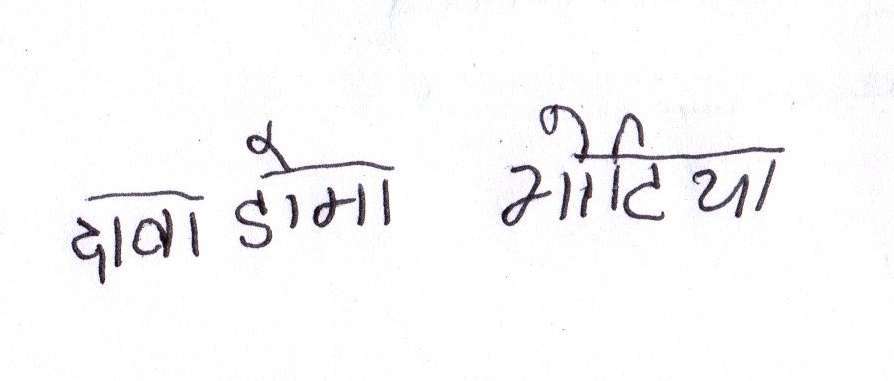 दावा डोमा भोटिया